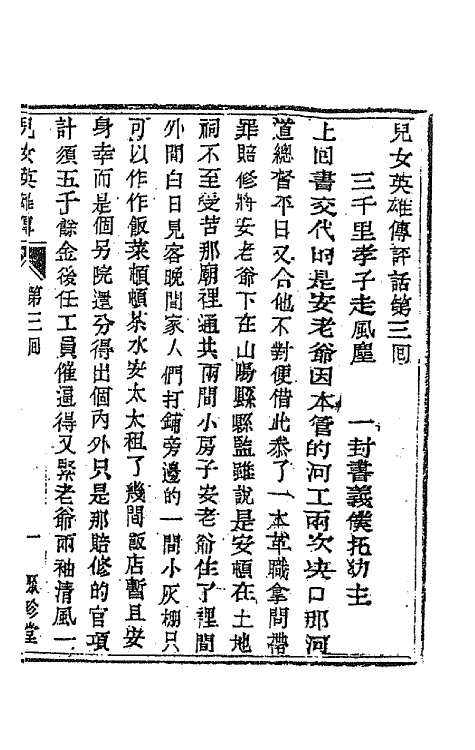 兒女英雄傳評話第三囘
三千里孝子走風塵 一封書義僕托幼主
上囘書交代的是安老爺因本管的河工兩次决口那河
道總督平日又合他不對便借此叅了一本革職拿問帶
罪賠修將安老爺下在山陽縣縣監雖說是安頓在土地
祠不至受苦那廟裡通共兩間小房子安老爺住了裡間
外間白日見客晚間家人們打鋪旁邊的一間小灰棚只
可以作作飯菜頓頓茶水安太太租了幾間飯店暫且安
身幸而是個另院還分得出個内外只是那賠修的官項
計須五千餘金後任工員催逼得又緊老爺兩袖清風一
兒女英雄傳 第三囘 一 聚珍堂